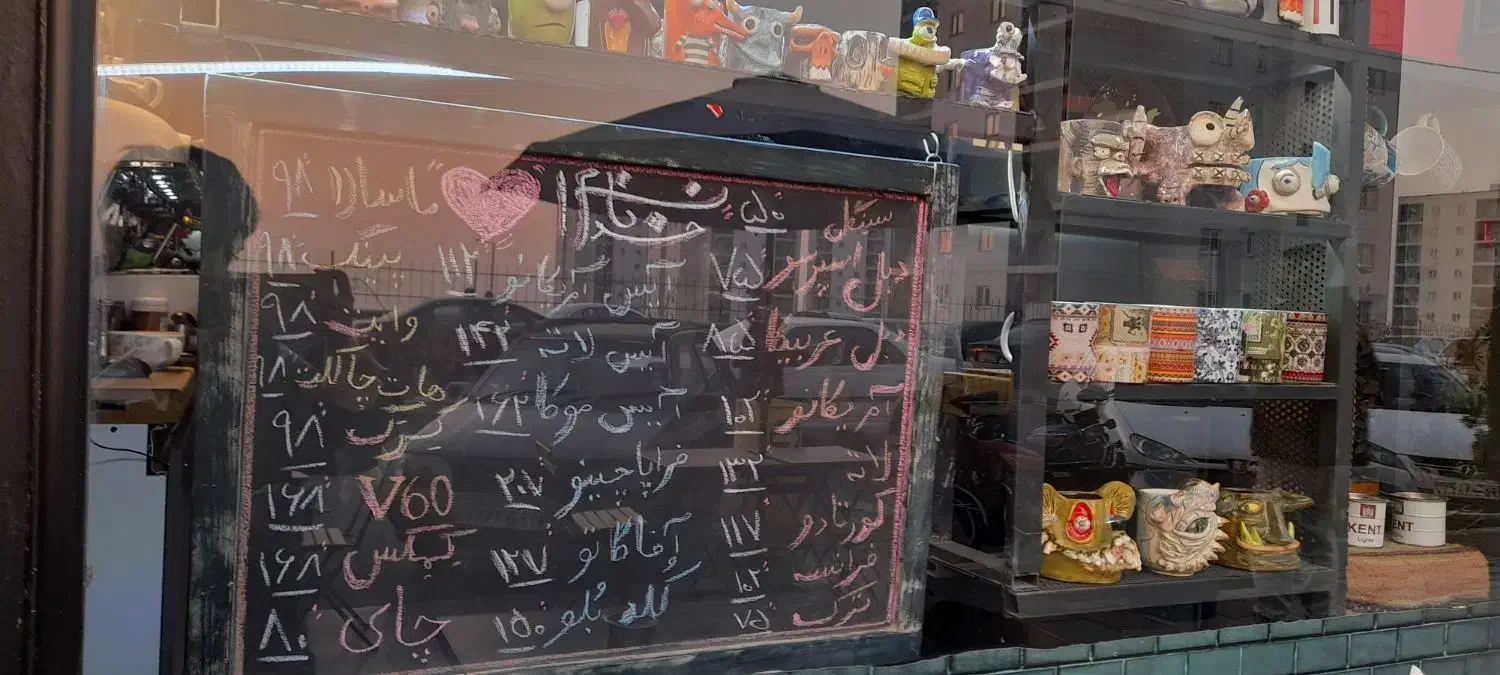 سینگل ۵۰
دبل اسپرسو ۷۵
دبل عربیکا ۸۵
آمریکانو ۱۰۲
لاته ۱۳۲
کورتادو ۱۱۷
فرانسه ۱۰۲
ترک ۷۵
آیس آمریکانو ۱۱۲
آیس لاته ۱۴۲
آیس موکا ۱۶۲
فراپاچینو ۲۰۷
آفاگاتو ۱۲۷
کله بلو ۱۵۰
ماسالا ۹۸
پینک ۹۸
وایت ۹۸
هات چاکلت
کرک ۹۸
V60 ۱۶۸
کمکس ۱۶۸
چای ۸۰
KENT
KENT